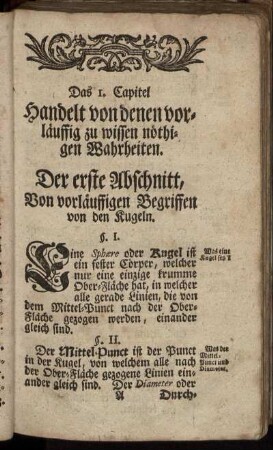 Das 1. Capitel
Handelt von denen vor-
läuffig zu wissen nöthi-
gen Wahrheiten.
Der erste Abschnitt,
Von vorläuffigen Begriffen
von den Kugeln.
§. I.
Eine Sphære oder Kugel ist
ein fester Cörper, welcher
nur eine einzige krumme
Ober-Fläche hat, in welcher
alle gerade Linien, die von
dem Mittel-Punct nach der Ober-
Fläche gezogen werden, einander
gleich sind.
Was eine
Kugel sey?
§. II.
Der Mittel-Punct ist der Punct
in der Kugel, von welchem alle nach
der Ober-Fläche gezogene Linien ein-
ander gleich sind. Der Diameter oder
Was der
Mittel-
Punct und
Diameter.
A Durch-